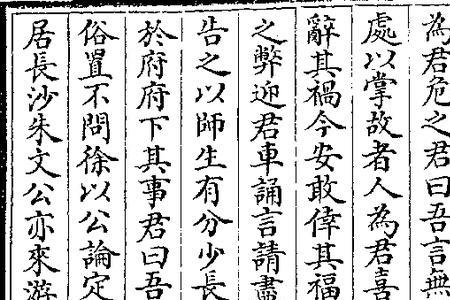 為君危之君曰吾言無
處以掌故者人為君喜
辭其禍今安敢倖其福
之弊迎君車誦言請盡
告之以師生有分少長
於府府下其事君曰吾
俗置不問徐以公論定
居長沙朱文公亦來游